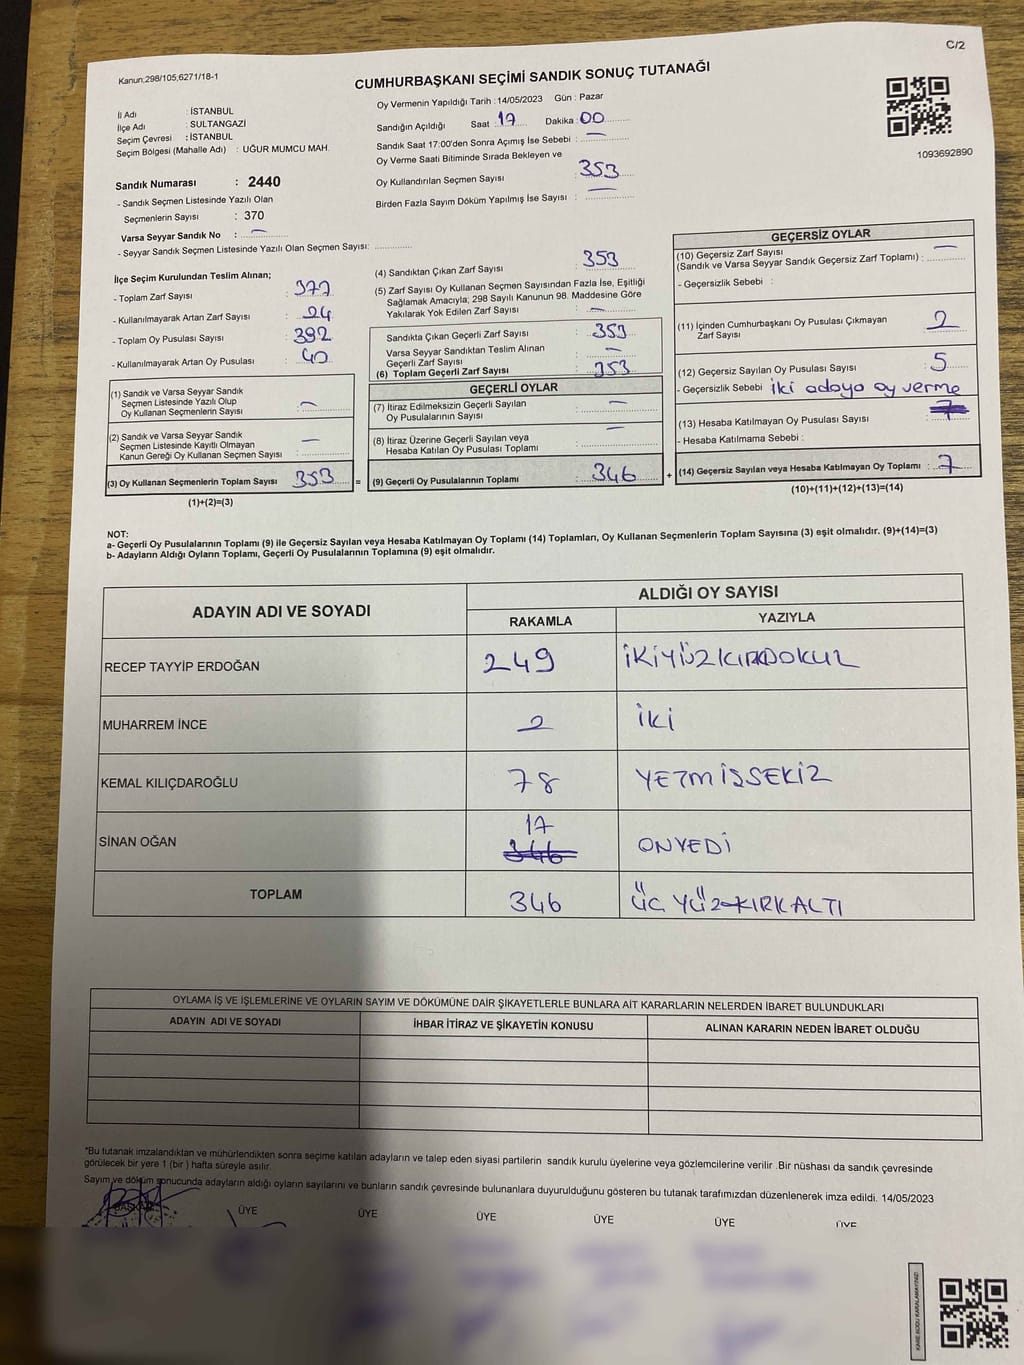 C/2
Kanun;298/105,6271/18-1
CUMHURBAŞKANI SEÇİMİ SANDIK SONUÇ TUTANAĞI
İl Adı : İSTANBUL
İlçe Adı : SULTANGAZİ
Seçim Çevresi : İSTANBUL
Seçim Bölgesi (Mahalle Adı) : UĞUR MUMCU MAH.
Sandık Numarası : 2440
- Sandık Seçmen Listesinde Yazılı Olan
Seçmenlerin Sayısı : 370
Varsa Seyyar Sandık No : —
- Seyyar Sandık Seçmen Listesinde Yazılı Olan Seçmen Sayısı: ............
Oy Vermenin Yapıldığı Tarih : 14/05/2023 Gün : Pazar
Sandığın Açıldığı Saat : 17 Dakika : 00
Sandık Saat 17:00'den Sonra Açımış İse Sebebi : —
Oy Verme Saati Bitiminde Sırada Bekleyen ve
Oy Kullandırılan Seçmen Sayısı : 353
Birden Fazla Sayım Döküm Yapılmış İse Sayısı : —
1093692890
İlçe Seçim Kurulundan Teslim Alınan;
- Toplam Zarf Sayısı : 377
- Kullanılmayarak Artan Zarf Sayısı : 24
- Toplam Oy Pusulası Sayısı : 392
- Kullanılmayarak Artan Oy Pusulası : 40
(1) Sandık ve Varsa Seyyar Sandık
Seçmen Listesinde Yazılı Olup
Oy Kullanan Seçmenlerin Sayısı : —
(2) Sandık ve Varsa Seyyar Sandık
Seçmen Listesinde Kayıtlı Olmayan
Kanun Gereği Oy Kullanan Seçmen Sayısı : —
(3) Oy Kullanan Seçmenlerin Toplam Sayısı : 353 =
(1)+(2)=(3)
(4) Sandıktan Çıkan Zarf Sayısı : 353
(5) Zarf Sayısı Oy Kullanan Seçmen Sayısından Fazla İse, Eşitliği
Sağlamak Amacıyla; 298 Sayılı Kanunun 98. Maddesine Göre
Yakılarak Yok Edilen Zarf Sayısı : —
Sandıkta Çıkan Geçerli Zarf Sayısı : 353
Varsa Seyyar Sandıktan Teslim Alınan
Geçerli Zarf Sayısı : —
(6) Toplam Geçerli Zarf Sayısı : 353
GEÇERLİ OYLAR
(7) İtiraz Edilmeksizin Geçerli Sayılan
Oy Pusulalarının Sayısı : —
(8) İtiraz Üzerine Geçerli Sayılan veya
Hesaba Katılan Oy Pusulası Toplamı : —
(9) Geçerli Oy Pusulalarının Toplamı : 346 +
GEÇERSİZ OYLAR
(10) Geçersiz Zarf Sayısı
(Sandık ve Varsa Seyyar Sandık Geçersiz Zarf Toplamı) : —
- Geçersizlik Sebebi :
(11) İçinden Cumhurbaşkanı Oy Pusulası Çıkmayan
Zarf Sayısı : 2
(12) Geçersiz Sayılan Oy Pusulası Sayısı : 5
- Geçersizlik Sebebi : iki adaya oy verme
(13) Hesaba Katılmayan Oy Pusulası Sayısı : 7
- Hesaba Katılmama Sebebi :
(14) Geçersiz Sayılan veya Hesaba Katılmayan Oy Toplamı : 7
(10)+(11)+(12)+(13)=(14)
NOT:
a- Geçerli Oy Pusulalarının Toplamı (9) ile Geçersiz Sayılan veya Hesaba Katılmayan Oy Toplamı (14) Toplamları, Oy Kullanan Seçmenlerin Toplam Sayısına (3) eşit olmalıdır. (9)+(14)=(3)
b- Adayların Aldığı Oyların Toplamı, Geçerli Oy Pusulalarının Toplamına (9) eşit olmalıdır.
ADAYIN ADI VE SOYADI
ALDIĞI OY SAYISI
RAKAMLA YAZIYLA
RECEP TAYYİP ERDOĞAN 249 İKİYÜZKIRKDOKUZ
MUHARREM İNCE 2 İKİ
KEMAL KILIÇDAROĞLU 78 YETMİŞSEKİZ
SİNAN OĞAN 17 346 ONYEDİ
TOPLAM 346 ÜÇ YÜZ KIRK ALTI
OYLAMA İŞ VE İŞLEMLERİNE VE OYLARIN SAYIM VE DÖKÜMÜNE DAİR ŞİKAYETLERLE BUNLARA AİT KARARLARIN NELERDEN İBARET BULUNDUKLARI
ADAYIN ADI VE SOYADI İHBAR İTİRAZ VE ŞİKAYETİN KONUSU ALINAN KARARIN NEDEN İBARET OLDUĞU
*Bu tutanak imzalandıktan ve mühürlendikten sonra seçime katılan adayların ve talep eden siyasi partilerin sandık kurulu üyelerine veya gözlemcilerine verilir .Bir nüshası da sandık çevresinde
görülecek bir yere 1 (bir ) hafta süreyle asılır.
Sayım ve döküm sonucunda adayların aldığı oyların sayılarını ve bunların sandık çevresinde bulunanlara duyurulduğunu gösteren bu tutanak tarafımızdan düzenlenerek imza edildi. 14/05/2023
BAŞKAN ÜYE ÜYE ÜYE ÜYE ÜYE ÜYE
KARE KODU KARALAMAYINIZ!